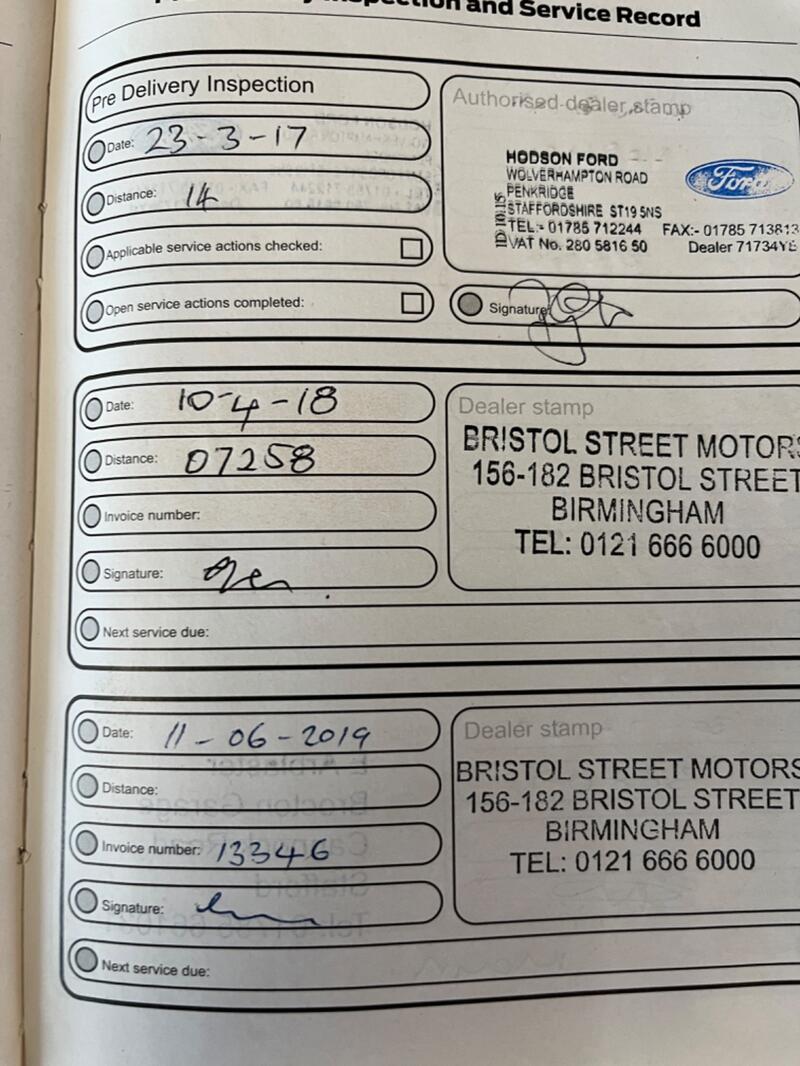 Inspection and Service Record
Pre Delivery Inspection
Date: 23-3-17
Distance: 14
Applicable service actions checked:
Open service actions completed:
Authorised dealer stamp
HODSON FORD
WOLVERHAMPTON ROAD
PENKRIDGE
STAFFORDSHIRE ST19 5NS
TEL:- 01785 712244 FAX:- 01785 713813
VAT No. 280 5816 50 Dealer 71734YE
Ford
Signature
Date: 10-4-18
Distance: 07258
Invoice number:
Signature:
Next service due:
Dealer stamp
BRISTOL STREET MOTORS
156-182 BRISTOL STREET
BIRMINGHAM
TEL: 0121 666 6000
Date: 11-06-2019
Distance:
Invoice number: 13346
Signature:
Next service due:
Dealer stamp
BRISTOL STREET MOTORS
156-182 BRISTOL STREET
BIRMINGHAM
TEL: 0121 666 6000